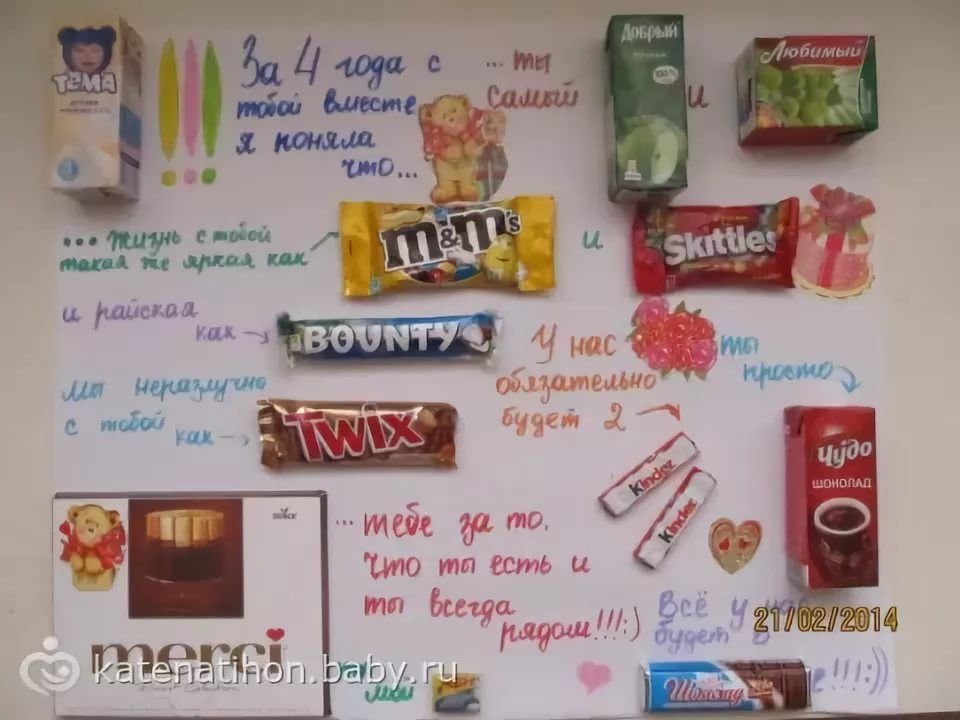 Тёма
!!!
За 4 года с
тобой вместе
я поняла
что...
... ты
самый
Добрый
100%
и
Любимый
... жизнь с тобой
такая же яркая как
m&m's
и
Skittles
и райская
как
BOUNTY
У нас
обязательно
будет 2
Kinder
Kinder
ты
просто
Чудо
ШОКОЛАД
Мы неразлучно
с тобой как
TWIX
merci
... тебе за то.
Что ты есть и
ты всегда
рядом!!!:)
Всё у нас
будет в
Шоколад
е!!!:))
21/02/2014
katenatihon.baby.ru